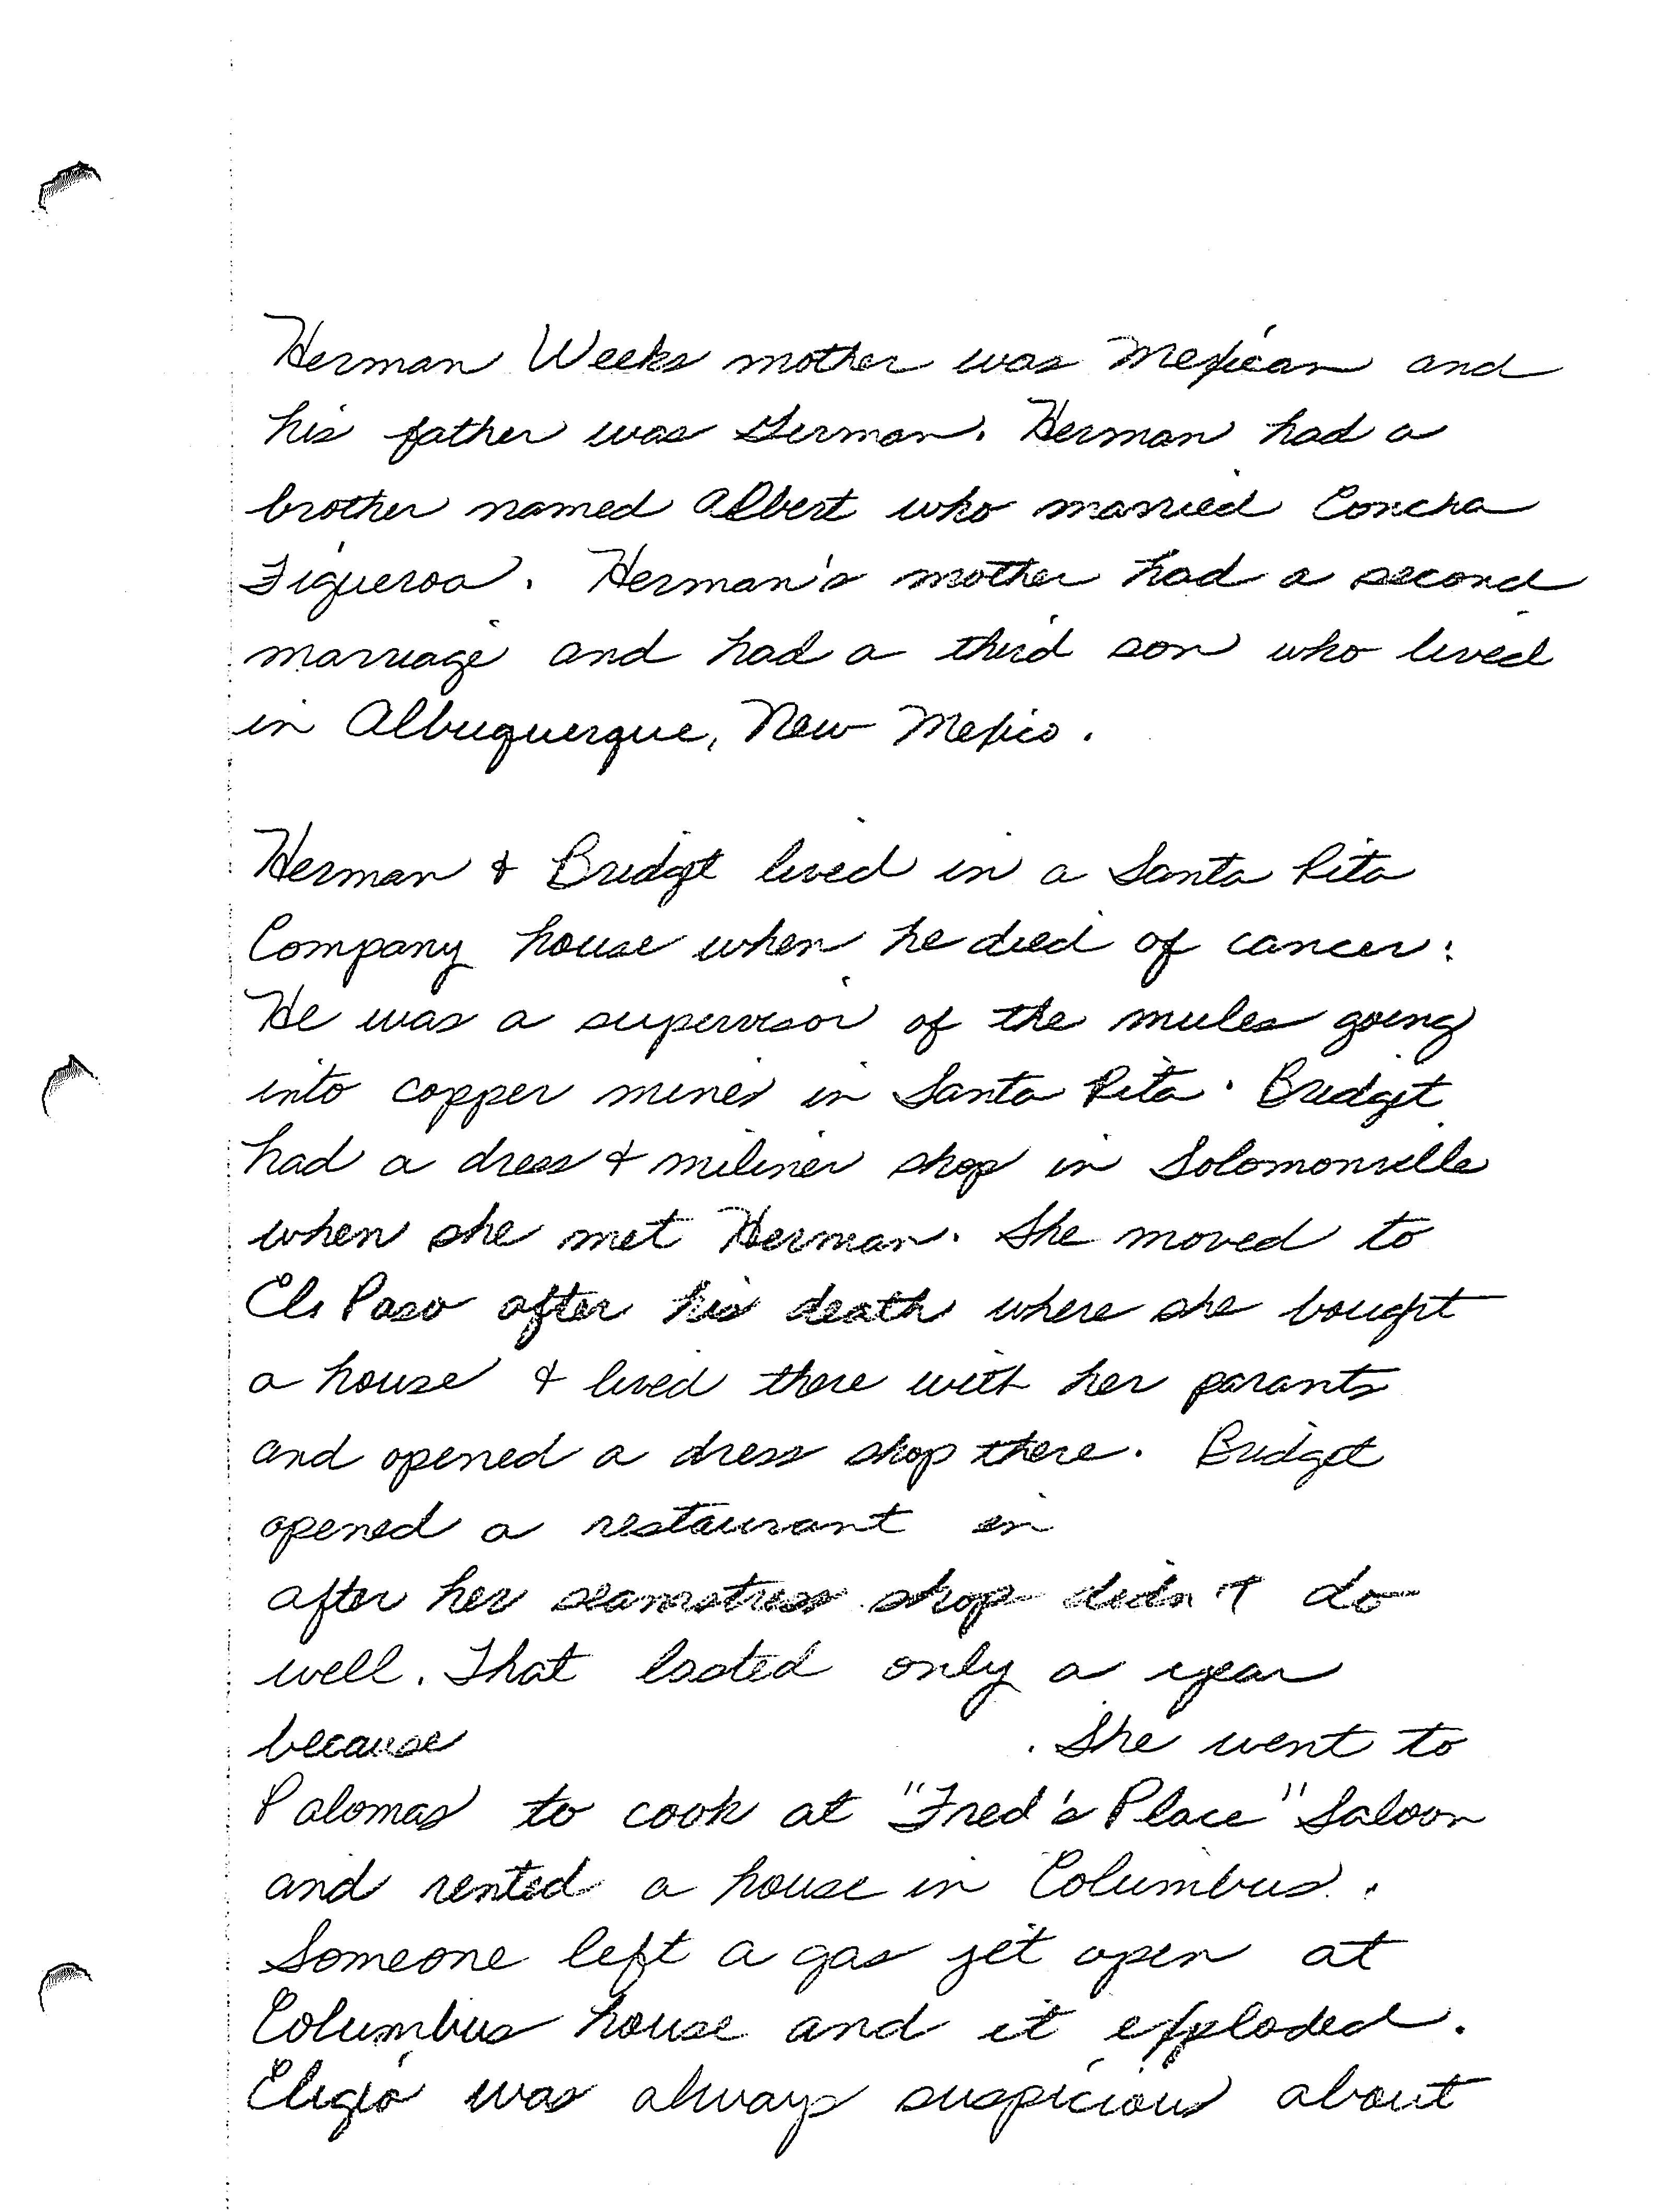 Herman Weeks mother was Mexican and
his father was German. Herman had a
brother named Albert who married Concha
Figueroa. Herman's mother had a second
marriage and had a third son who lived
in Albuquerque, New Mexico.
Herman & Bridget lived in a Santa Rita
Company house when he died of cancer.
He was a supervisor of the mules going
into copper mines in Santa Rita. Bridget
had a dress & miliner shop in Solomonville
when she met Herman. She moved to
El Paso after his death where she bought
a house & lived there with her parants
and opened a dress shop there. Bridget
opened a restaurant in
after her seamstress shop didn't do
well. That lasted only a year
because . She went to
Palomas to cook at "Fred's Place" Saloon
and rented a house in Columbus.
Someone left a gas jet open at
Columbus house and it exploded.
Eligio was always suspicious about